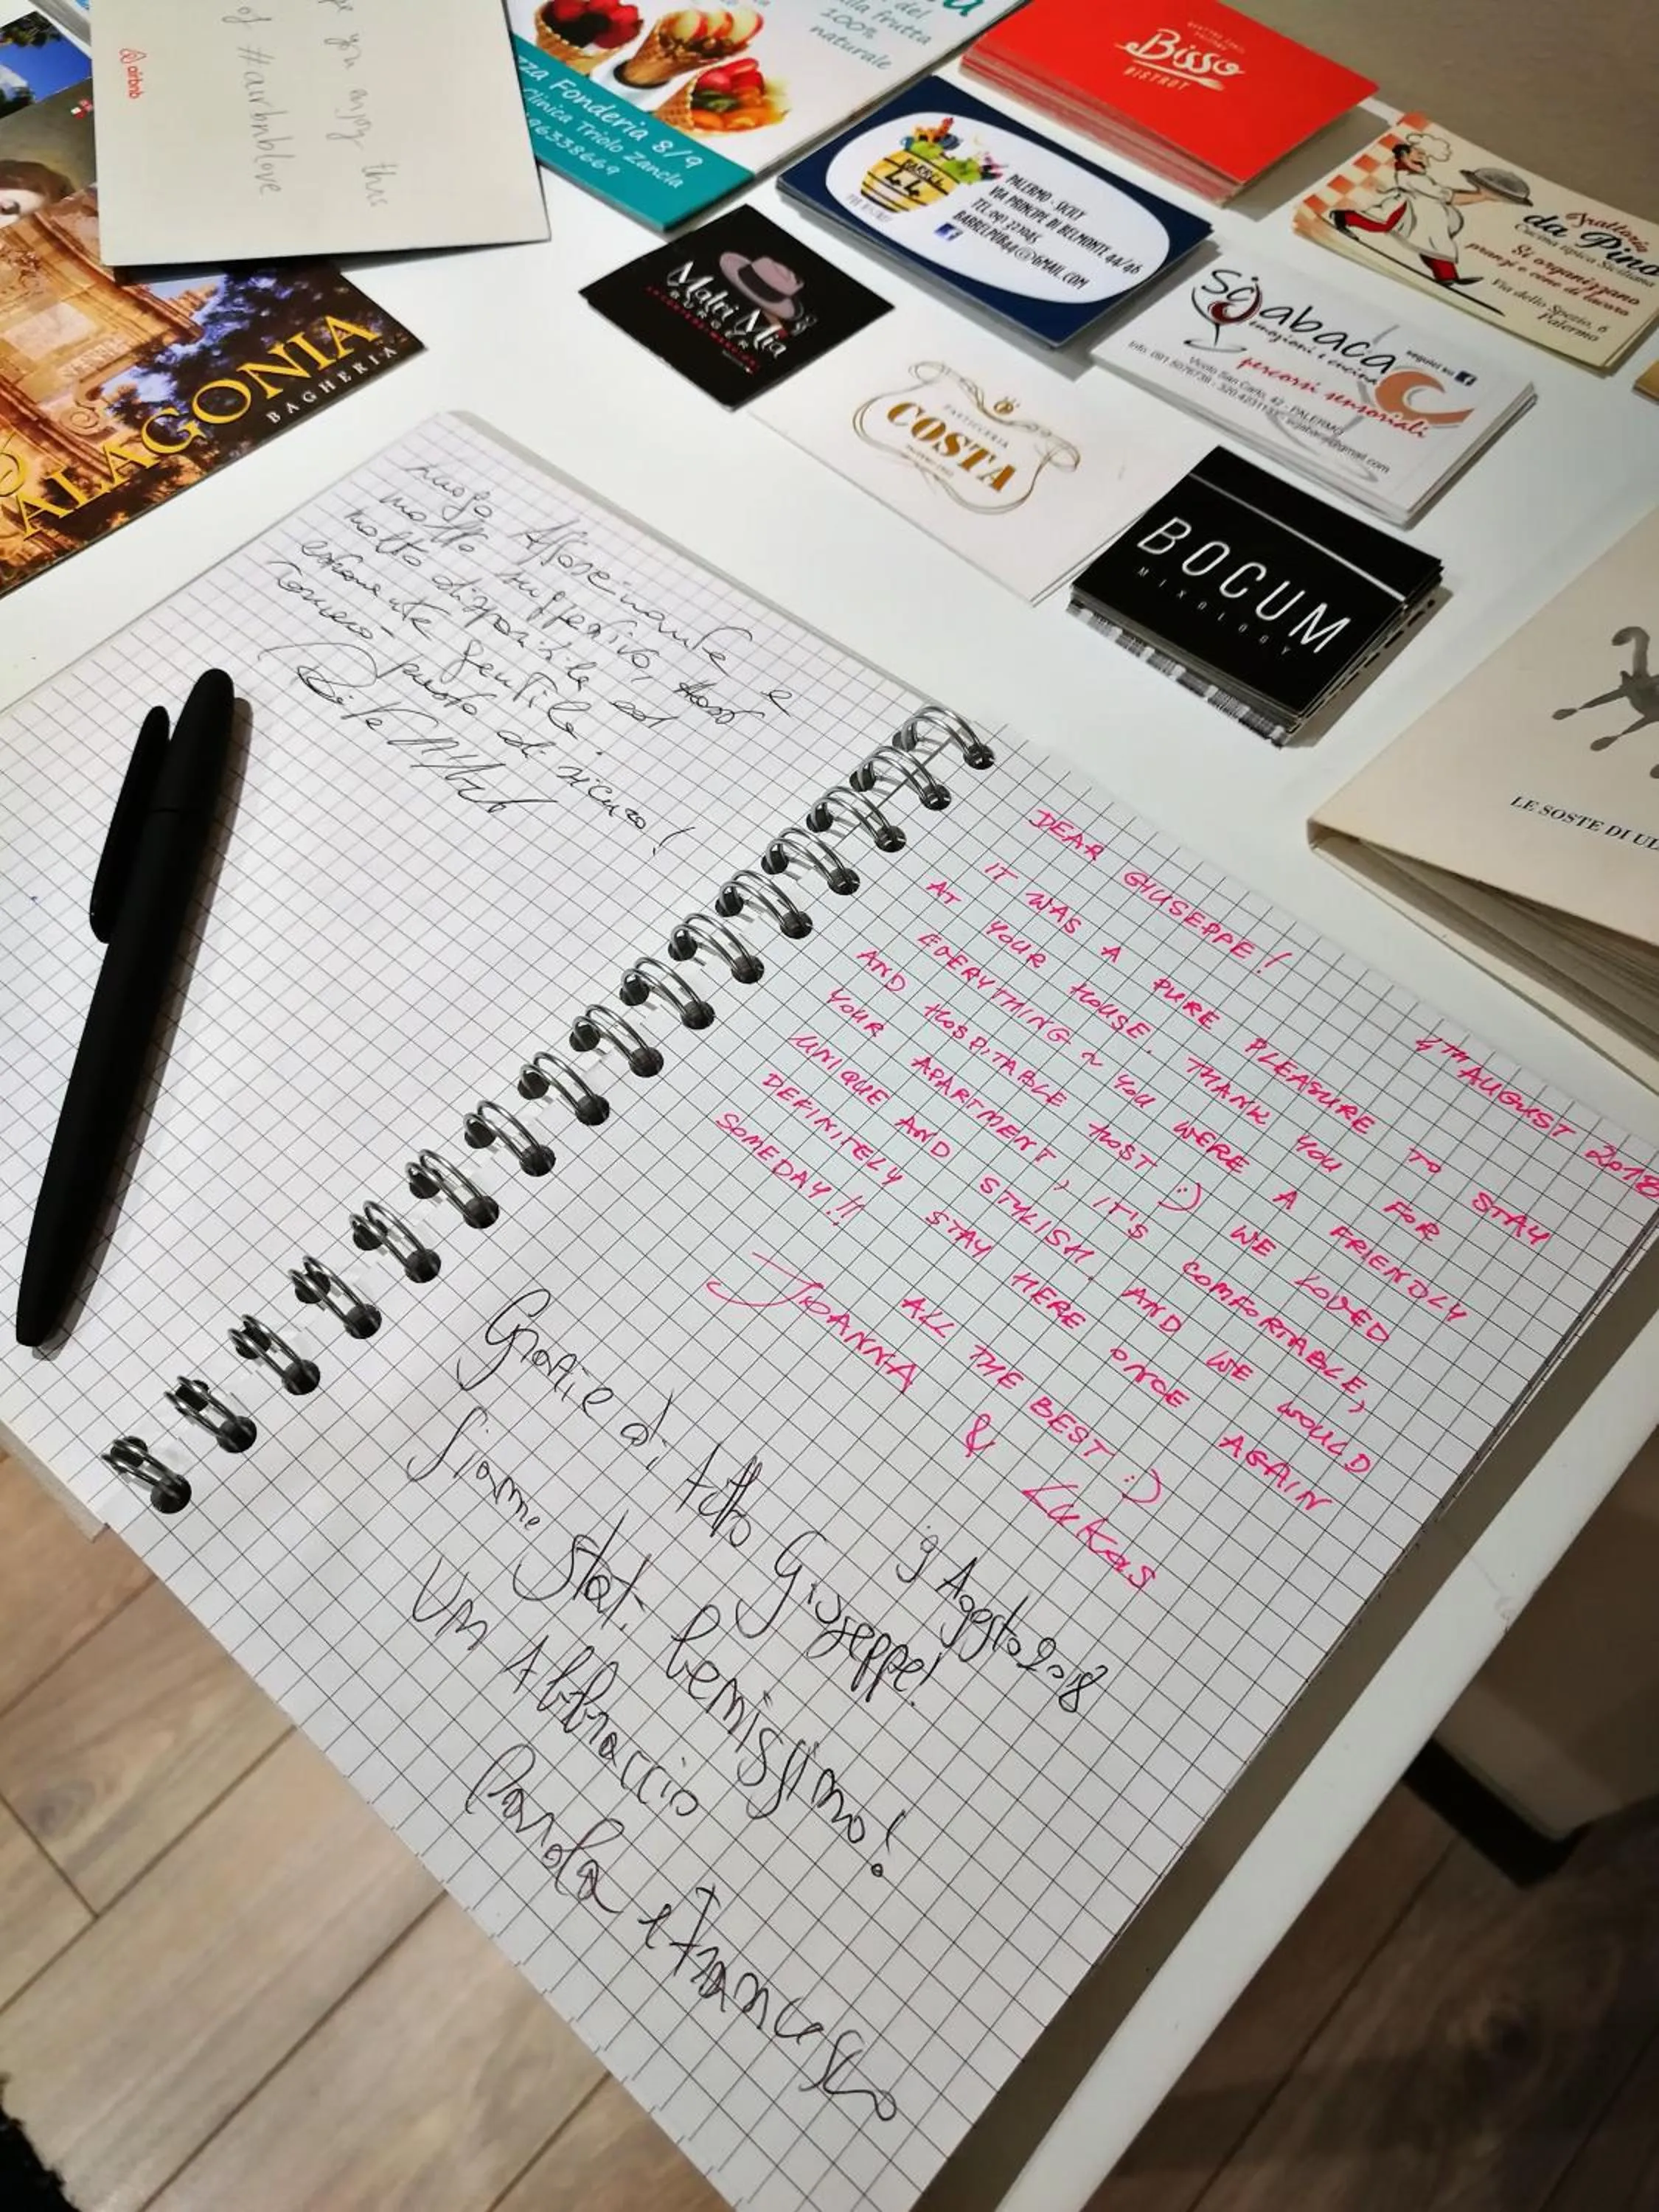 pe you enjoy this
of #airbnblove
airbnb
ALAGONIA
BAGHERIA
del
alla frutta
100%
naturale
zza Fonderia 8/9
Clinica Triolo Zancla
96338669
Bisso
BISTROT
BARREL
PALERMO - SICILY
VIA PRINCIPE DI BELMONTE 44/46
TEL.091 327045
BARRELPUB44@GMAIL.COM
Trattoria
da Pino
Cucina tipica Siciliana
Si organizzano
pranzi e cene di lavoro
Via dello Spezio, 6
Palermo
Matri Mia
BURGER
Sciabaca
emozioni e cucina
seguici su
percorsi sensoriali
Vicolo San Carlo, 42 - PALERMO
PASTICCERIA
COSTA
BOCUM
MIXOLOGY
LE SOSTE DI UL
Affascinante e
molto suggestivo, host
molto disponibile ed
gentile.
Tornerò di sicuro!
4TH AUGUST 2018
DEAR GIUSEPPE!
IT WAS A PURE PLEASURE TO STAY
AT YOUR HOUSE. THANK YOU FOR
EVERYTHING ~ YOU WERE A FRIENDLY
AND HOSPITABLE HOST :) WE LOVED
YOUR APARTMENT, IT'S COMFORTABLE,
UNIQUE AND STYLISH. AND WE WOULD
DEFINITELY STAY HERE ONCE AGAIN
SOMEDAY!!!
ALL THE BEST :)
JOANNA & LUKAS
9 Agosto 2018
Grazie di tutto Giuseppe!
Siamo stati benissimo!
Un Abbraccio
Paola e Francesco